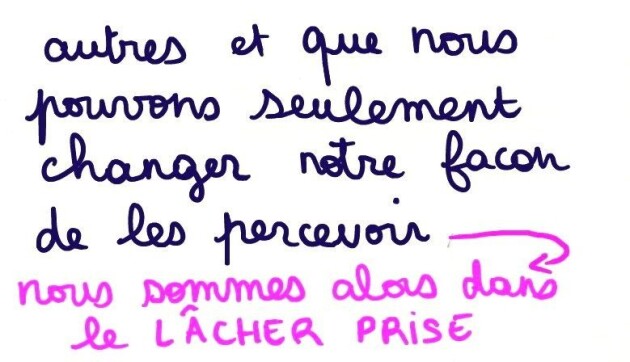 autres et que nous
pouvons seulement
changer notre facon
de les percevoir
nous sommes alors dans
le LÂCHER PRISE